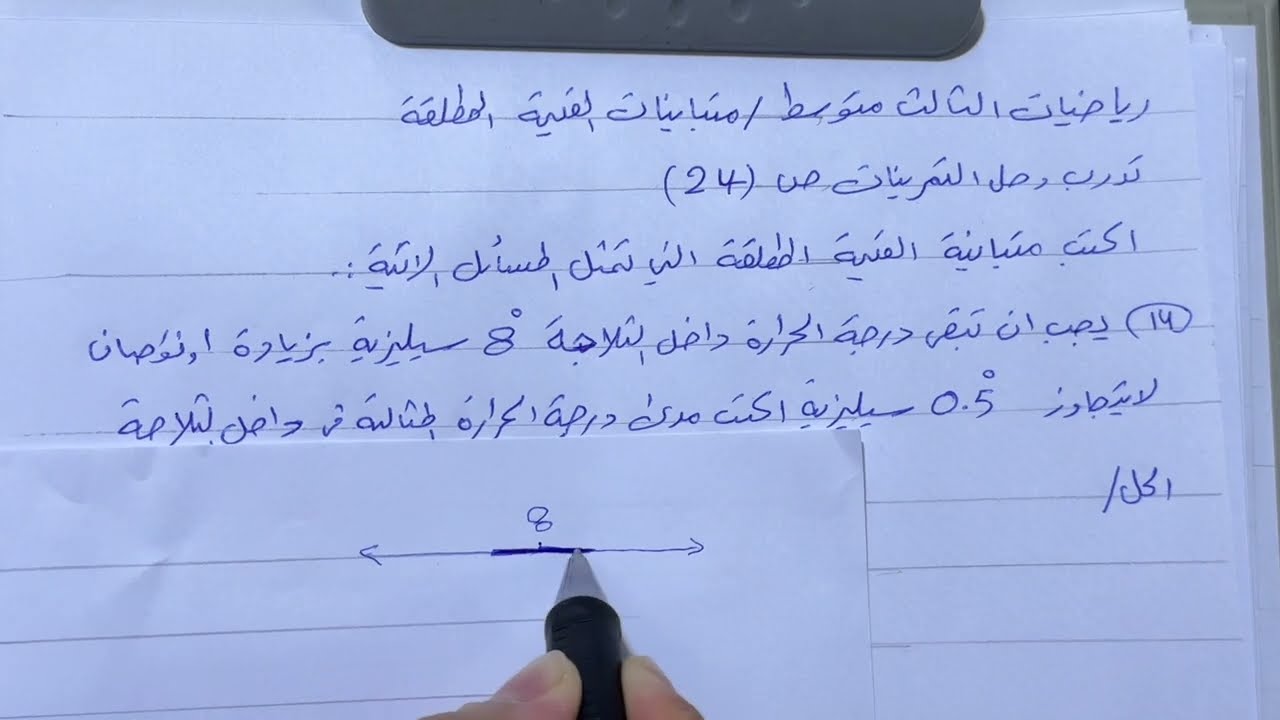 رياضيات الثالث متوسط / متباينات القيمة المطلقة
تدرب وحل التمرينات ص (24)
اكتب متباينة القيمة المطلقة التي تمثل المسائل الاتية :.
(14) يجب ان تبقى درجة الحرارة داخل الثلاجة 8° سيليزية بزيادة او نقصان
لا يتجاوز 0.5° سيليزية اكتب مدى درجة الحرارة المثالية في داخل الثلاجة
الحل /
8